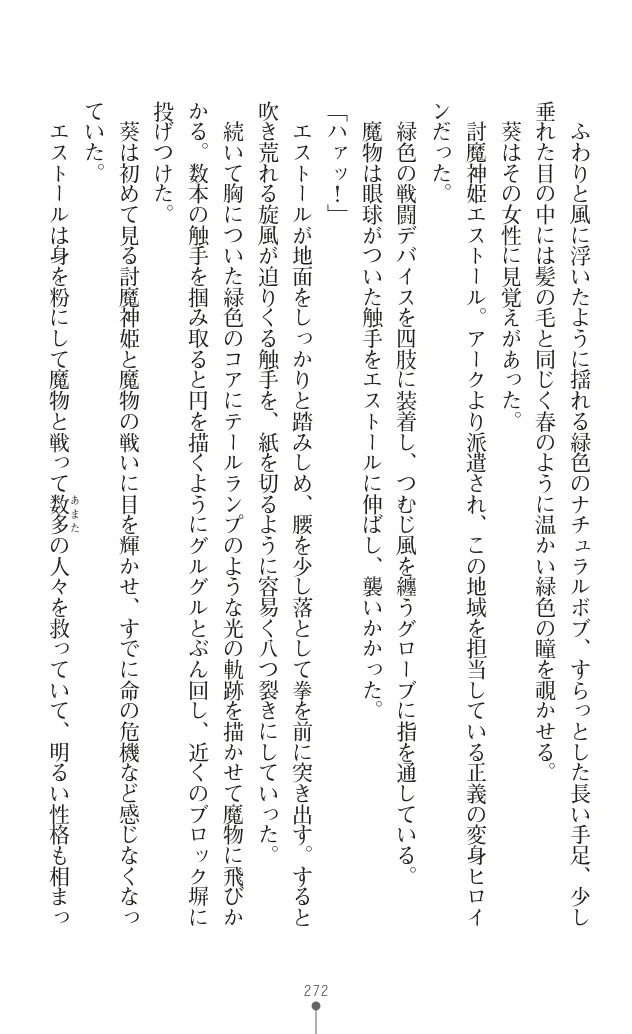 ふわりと風に浮いたように揺れる緑色のナチュラルボブ、すらっとした長い手足、少し
垂れた目の中には髪の毛と同じく春のように温かい緑色の瞳を覗かせる。
葵はその女性に見覚えがあった。
討魔神姫エストール。アークより派遣され、この地域を担当している正義の変身ヒロイ
ンだった。
緑色の戦闘デバイスを四肢に装着し、つむじ風を纏うグローブに指を通している。
魔物は眼球がついた触手をエストールに伸ばし、襲いかかった。
「ハァッ！」
エストールが地面をしっかりと踏みしめ、腰を少し落として拳を前に突き出す。すると
吹き荒れる旋風が迫りくる触手を、紙を切るように容易く八つ裂きにしていった。
続いて胸についた緑色のコアにテールランプのような光の軌跡を描かせて魔物に飛びか
かる。数本の触手を掴み取ると円を描くようにグルグルとぶん回し、近くのブロック塀に
投げつけた。
葵は初めて見る討魔神姫と魔物の戦いに目を輝かせ、すでに命の危機など感じなくなっ
ていた。
エストールは身を粉にして魔物と戦って数多の人々を救っていて、明るい性格も相まっ
あまた
272